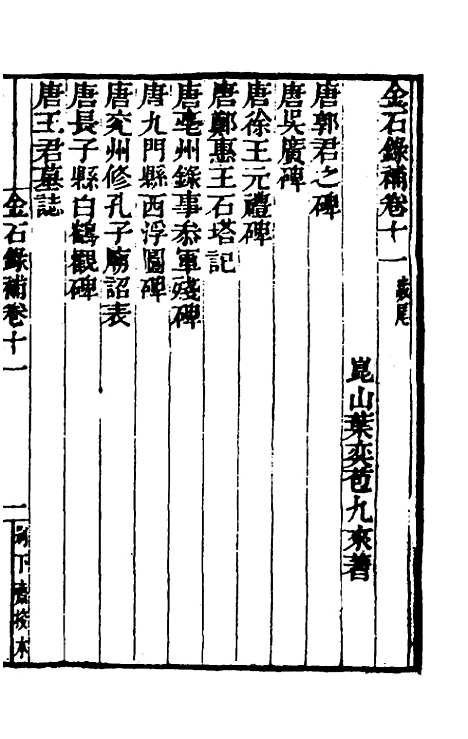 金石錄補卷十一
崑山葉奕苞九來著
唐郭君之碑
唐吳廣碑
唐徐王元禮碑
唐鄭惠王石塔記
唐亳州錄事參軍殘碑
唐九門縣西浮圖碑
唐兗州修孔子廟詔表
唐長子縣白鶴觀碑
唐王君墓誌
金石錄補卷十一
一
下齋校本